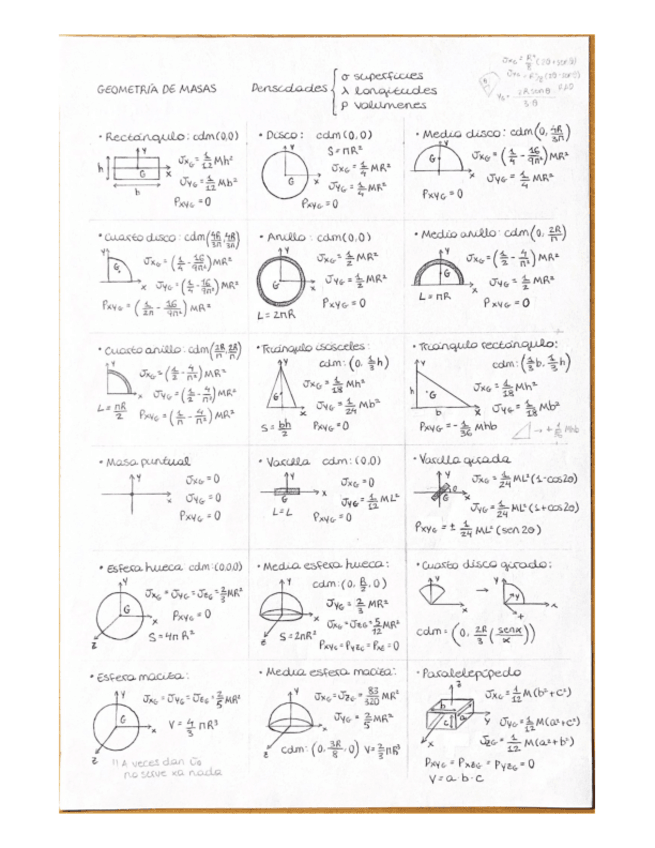 GEOMETRÍA DE MASAS
Densidades { σ superficies
λ longitudes
ρ volumenes
• Rectángulo: cdm(0,0)
h
b
G
y
x
JxG = 1/12 Mh²
JyG = 1/12 Mb²
PxyG = 0
• Disco: cdm(0,0)
S = πR²
JxG = 1/4 MR²
JyG = 1/4 MR²
PxyG = 0
• Medio disco: cdm(0, 4R/3π)
JxG = (1/4 - 16/9π²)MR²
JyG = 1/4 MR²
PxyG = 0
• Cuarto disco: cdm(4R/3π, 4R/3π)
JxG = (1/4 - 16/9π²)MR²
JyG = (1/4 - 16/9π²)MR²
PxyG = (1/2π - 16/9π²)MR²
• Anillo: cdm(0,0)
JxG = 1/2 MR²
JyG = 1/2 MR²
PxyG = 0
L = 2πR
• Medio anillo: cdm(0, 2R/π)
JxG = (1/2 - 4/π²)MR²
JyG = 1/2 MR²
L = πR
PxyG = 0
• Cuarto anillo: cdm(2R/π, 2R/π)
JxG = (1/2 - 4/π²)MR²
JyG = (1/2 - 4/π²)MR²
L = πR/2
PxyG = (1/π - 4/π²)MR²
• Triángulo isósceles:
cdm: (0, 1/3 h)
JxG = 1/18 Mh²
JyG = 1/24 Mb²
S = bh/2
PxyG = 0
• Triángulo rectángulo:
cdm: (1/3 b, 1/3 h)
JxG = 1/18 Mh²
JyG = 1/18 Mb²
PxyG = - 1/36 Mhb
• Masa puntual
JxG = 0
JyG = 0
PxyG = 0
• Varilla cdm: (0,0)
JxG = 0
JyG = 1/12 ML²
L = L
PxyG = 0
• Varilla girada
JxG = 1/24 ML²(1-cos2θ)
JyG = 1/24 ML²(1+cos2θ)
PxyG = ± 1/24 ML²(sen2θ)
• Esfera hueca: cdm(0,0,0)
JxG = JyG = JzG = 2/3 MR²
PxyG = 0
S = 4πR²
• Media esfera hueca:
cdm: (0, R/2, 0)
JyG = 2/3 MR²
JxG = JzG = 5/12 MR²
S = 2πR²
PxyG = PyzG = Pxz = 0
• Cuarto disco girado:
cdm = (0, 2R/3 (senα/α))
• Esfera maciza:
JxG = JyG = JzG = 2/5 MR²
V = 4/3 πR³
!! A veces dan ūG
no sirve xa nada
• Media esfera maciza:
JxG = JzG = 83/320 MR²
JyG = 2/5 MR²
cdm: (0, 3R/8, 0) V = 2/3 πR³
• Paralelepípedo
JxG = 1/12 M(b²+c²)
JyG = 1/12 M(a²+c²)
JzG = 1/12 M(a²+b²)
PxyG = PxzG = PyzG = 0
V = a·b·c